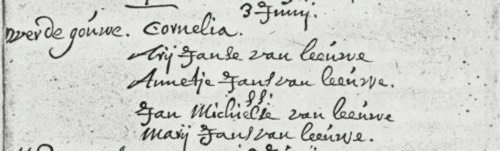 3 Junij.
verde gouwe. Cornelia.
Arij Janse van leeuwe
Annetje Jans van leeuwe.
Jan Michielse van leeuwe
Marij Jans van leeuwe.